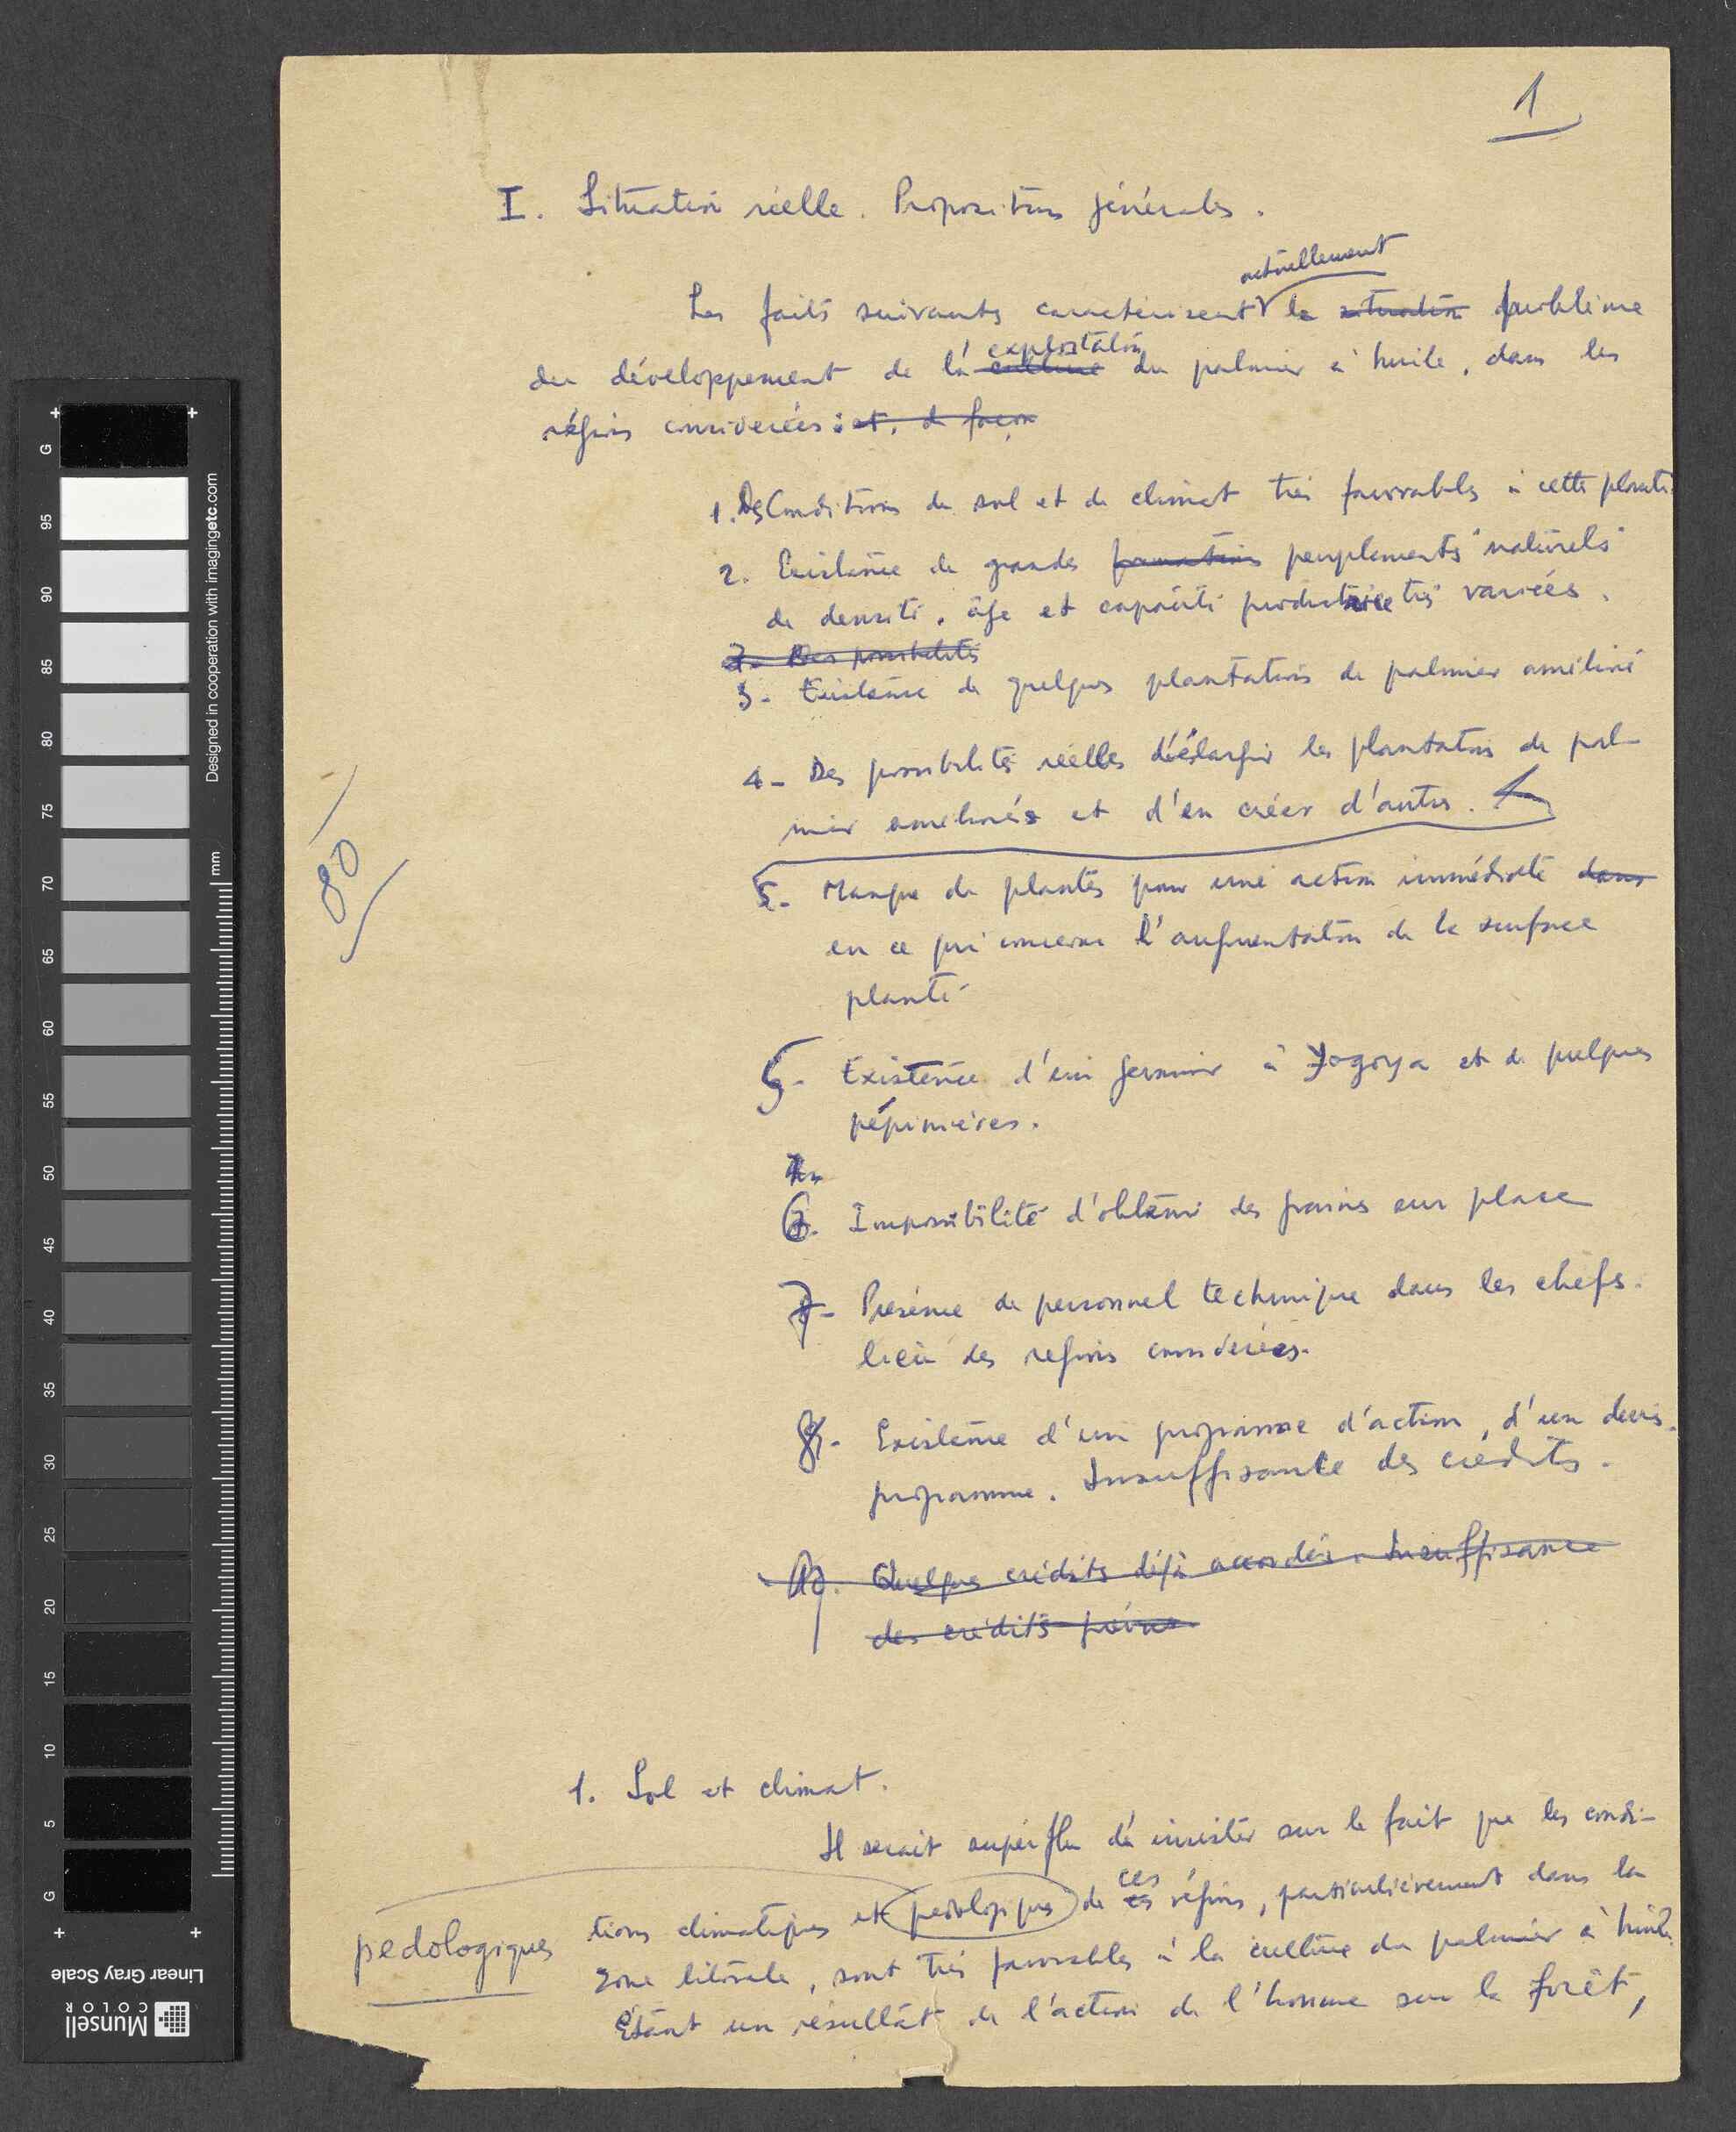 1
I. Situation réelle. Propositions générales.
actuellement
Les faits suivants caractérisent le situation problème
exploitation
du développement de la culture du palmier à huile, dans les
régions considérées : et, de façon
1. Des Conditions de sol et de climat très favorables à cette plante
2. Existence de grandes formations peuplements "naturels"
de densité, âge et capacité productrice très variées.
3. Des possibilités
3- Existence de quelques plantations de palmier amélioré
4- Des possibilités réelles d'élargir les plantations de pal-
mier amélioré et d'en créer d'autres.
5- Manque de plantes pour une action immédiate dans
en ce qui concerne l'augmentation de la surface
planté
5- Existence d'un germoir à Yogoya et de quelques
pépinières.
7-
6. Impossibilité d'obtenir des grains sur place
7- Présence de personnel technique dans les chefs-
lieu des régions considérées.
8- Existence d'un programme d'action, d'un devis-
programme. Insuffisante des crédits.
10. Quelques crédits déjà accordés. Insuffisance
des crédits prévus.
80
1. Sol et climat.
Il serait superflu de insister sur le fait que les condi-
ces
tions climatiques et pedologiques de ces régions, particulièrement dans la
pedologiques
zone litorale, sont très favorables à la culture du palmier à huile.
Étant un résultat de l'action de l'homme sur la forêt,
Designed in cooperation with imagingetc.com
mm
G
95
90
85
80
75
70
65
60
55
50
45
40
35
30
25
20
15
10
5
G
Linear Gray Scale
Munsell
COLOR